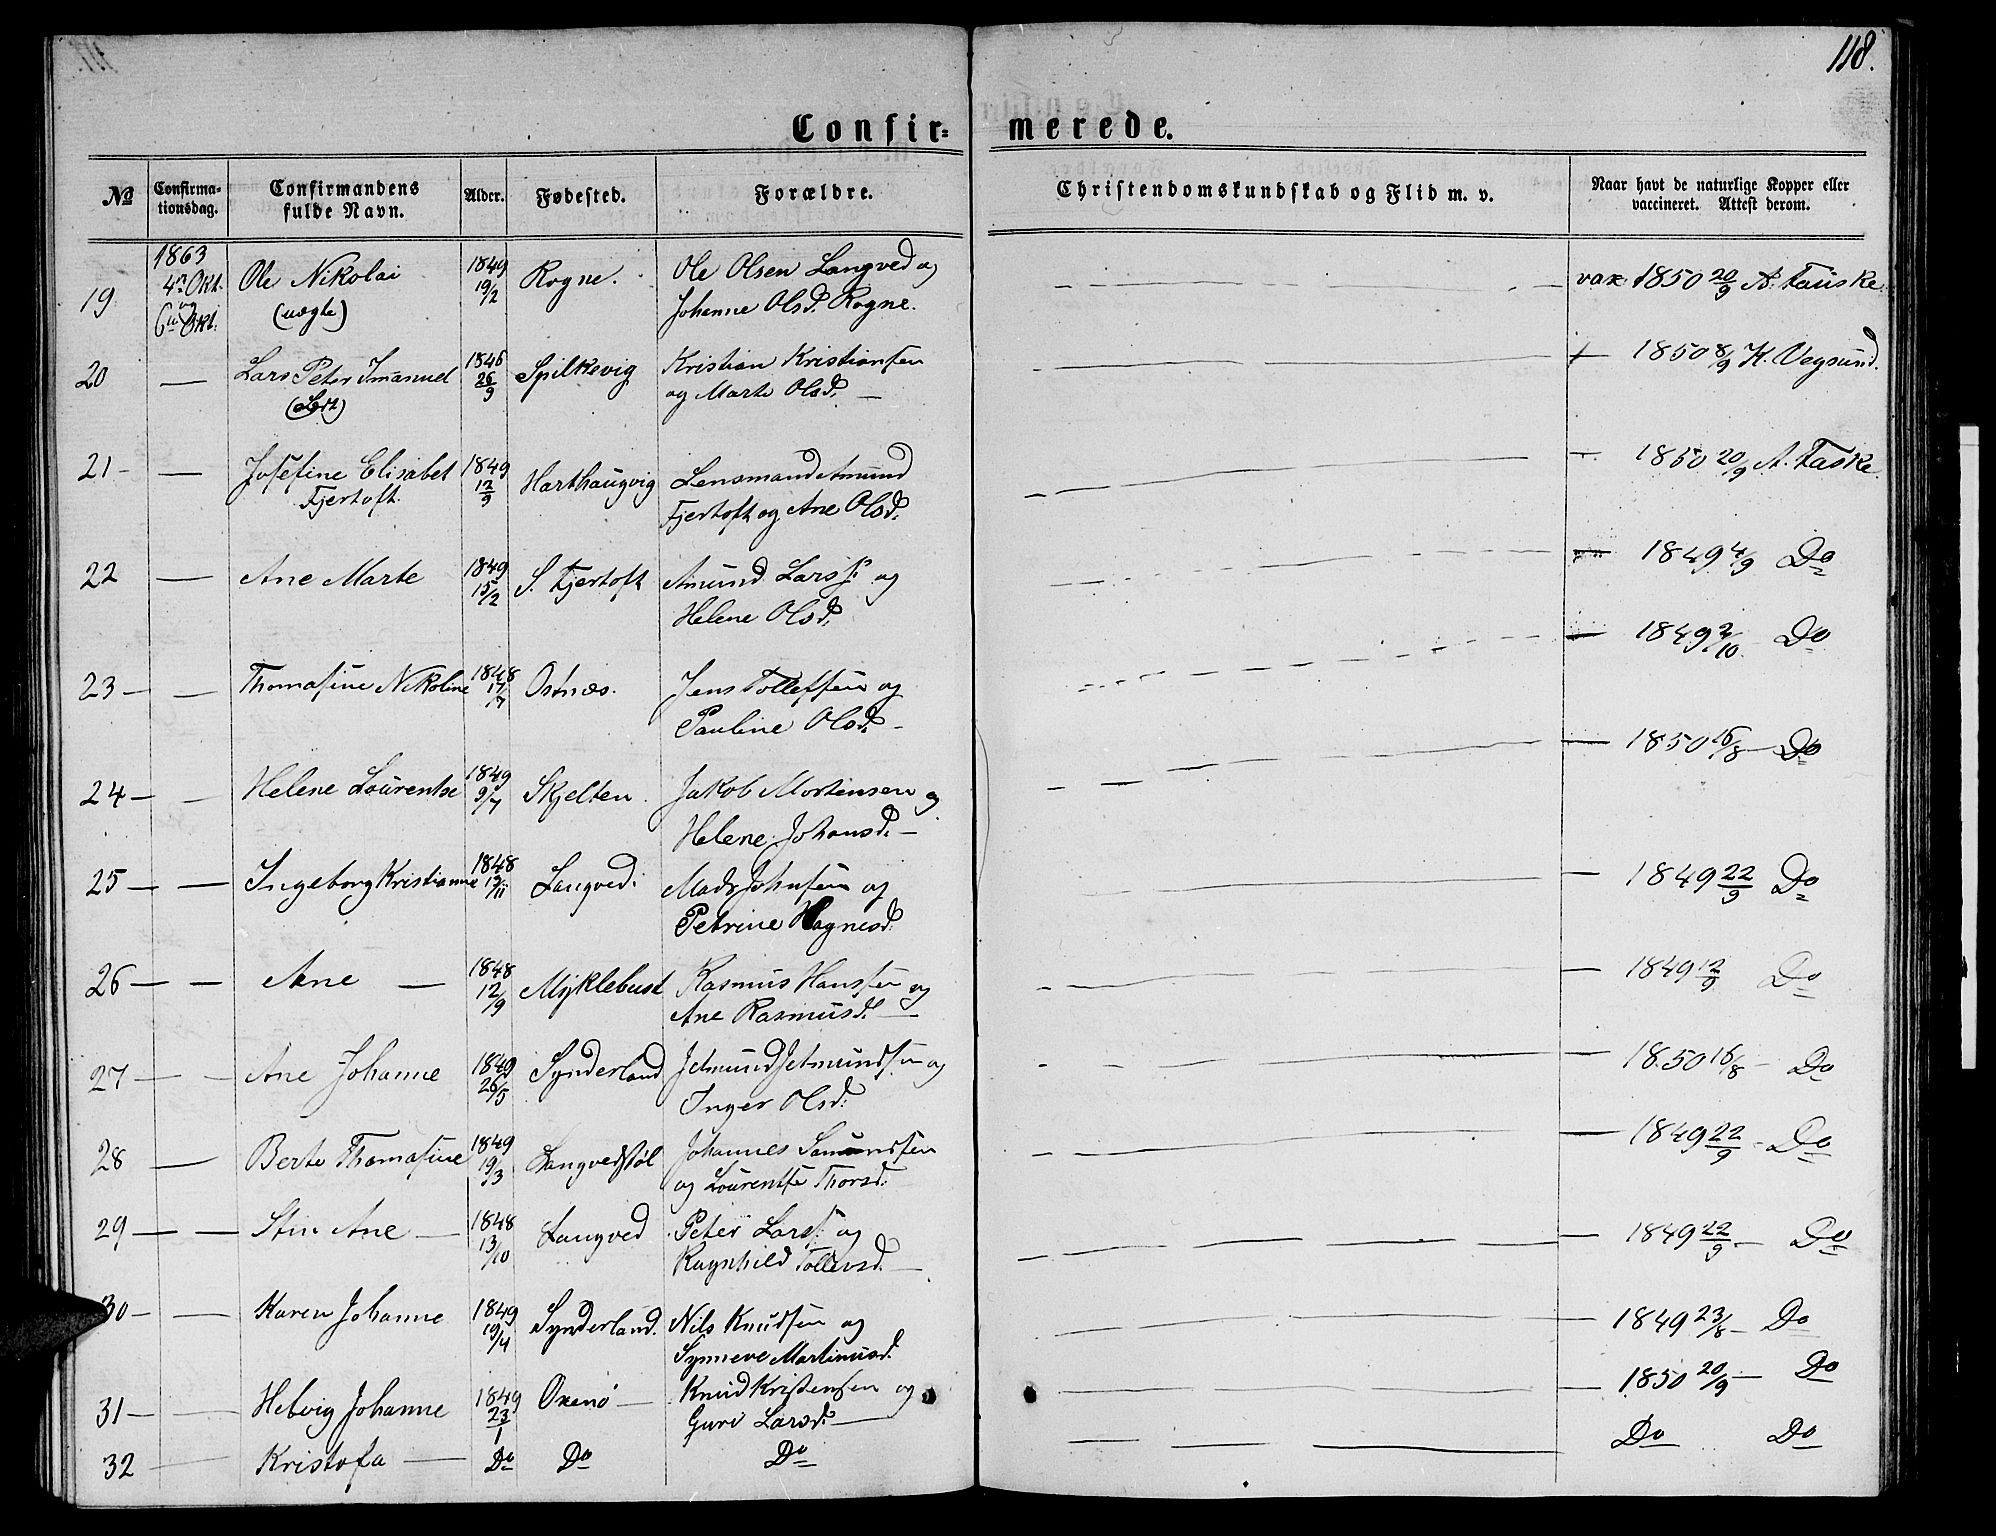 118.
Confir- merede.
No Confirmationsdag. Confirmandens fulde Navn. Alder. Fødested. Forældre. Christendomskundskab og Flid m. v. Naar havt de naturlige Kopper eller vaccineret. Attest derom.
19 1863 4de Okt. og Okt. Ole Nikolai (uægte) 1849 19/2 Rogne. Ole Olsen Langved og Johanne Olsd. Rogne. — vax. 1850 20/9 A. Tauske
20 — Lars Peter Imanuel 1846 26/9 Spilkevig Kristian Kristiansen og Marte Olsd. — 1850 8/9 K. Vegsund.
21 — — Josefine Elisabet Fjertoft. 1849 12/9 Harthaugvig Lensmand Amund Fjertoft og Ane Olsd. — 1850 20/9 A. Taske
22 — Ane Marte 1849 15/2 S. Fjertoft Amund Larss. og Helene Olsd. — 1849 4/9 Do
23 — — Thomasine Nikoline 1848 17/7 Ostnæs. Jens Tollefsen og Pauline Olsd. — 1849 2/10 Do
24 — — Helene Lourentse 1849 9/7 Skjelten. Jakob Mortensen og Helene Johansd. — 1850 16/8 — Do
25 — — Ingeborg Kristianne 1848 /11 Langved. Mads Johnsen og Petrine Hagnesd. — 1849 22/9 Do
26 — — Ane — 1848 12/9 Myklebust Rasmus Hanssen og Ane Rasmusd. — 1849 12/9 Do
27 — — Ane Johanne 1849 26/5 Synderland Jetmund Jetmundsen og Inger Olsd. — 1850 16/8 — Do
28 — Berte Thomasine 1849 19/3 Langvedstøl Johannes Samundsen og Lourentse Thorsd. — 1849 22/9 — Do
29 — — Stin Ane — 1848 13/10 Langved Peter Larss. og Ragnhild Tollevsd. — 1849 22/9 — Do
30 — — Karen Johanne 1849 19/4 Synderland. Nils Knudsen og Synneve Martinusd. — 1849 23/8 — Do
31 — — Helvig Johanne 1849 23/1 Oxenö — Knud Kristensen og Guri Larsd. — 1850 20/9 — Do
32 — Kristofa — Do Do Do — Do Do